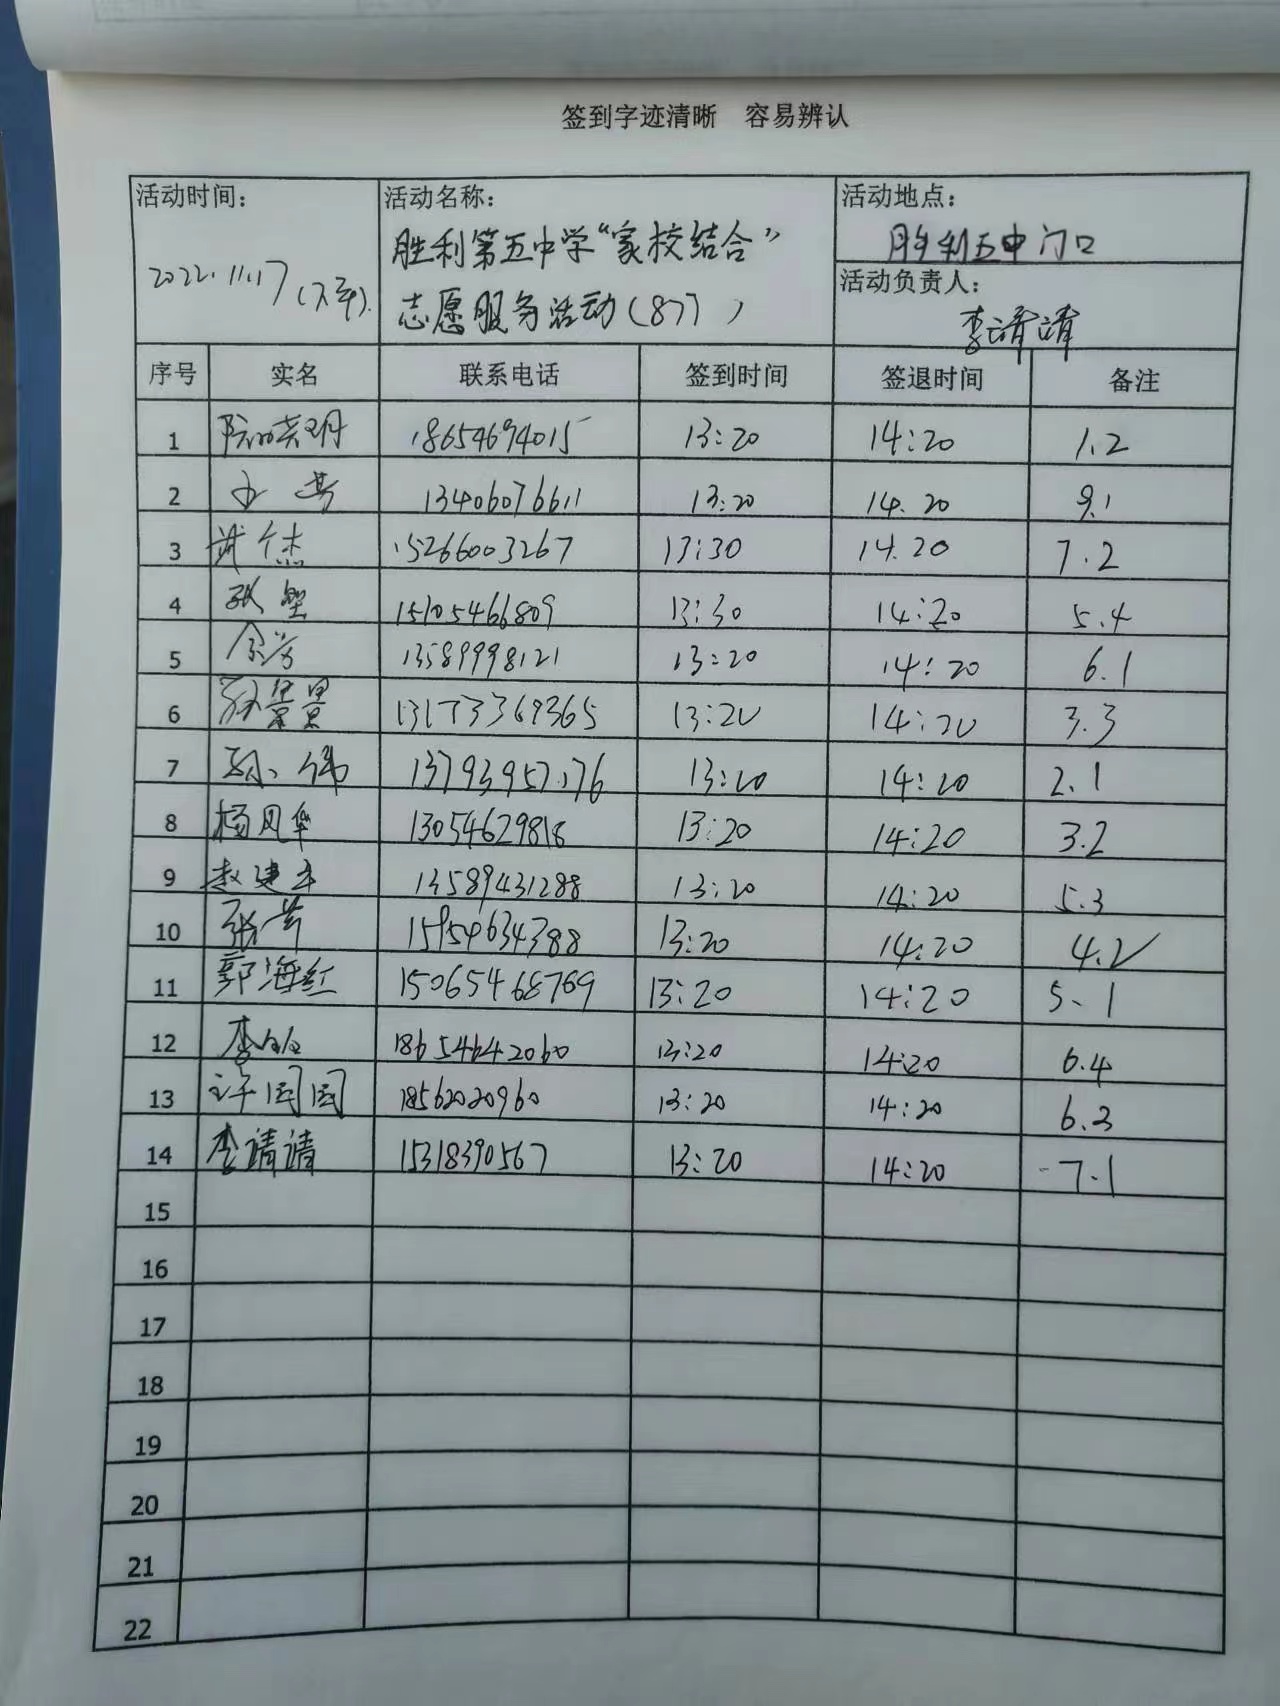 签到字迹清晰 容易辨认
活动时间:
2022.11.17(下午).
活动名称:
胜利第五中学“家校结合”
志愿服务活动(877)
活动地点:
胜利五中门口
活动负责人:
李靖靖
序号 实名 联系电话 签到时间 签退时间 备注
1 18654694015 13:20 14:20 1.2
2 13406076611 13:20 14.20 9.1
3 武仁杰 15266003267 13:30 14.20 7.2
4 15105466809 13:30 14:20 5.4
5 13589998121 13:20 14:20 6.1
6 孙景景 13173369365 13:20 14:20 3.3
7 孙伟 13793957176 13:20 14:20 2.1
8 杨凤华 13054629818 13:20 14:20 3.2
9 赵建 13589431288 13:20 14:20 5.3
10 张 15954634388 13:20 14:20 4.2
11 郭海红 15065468769 13:20 14:20 5.1
12 李 18654642060 13:20 14:20 6.4
13 许园园 18562020960 13:20 14:20 6.3
14 李靖靖 15318390567 13:20 14:20 7.1
15
16
17
18
19
20
21
22